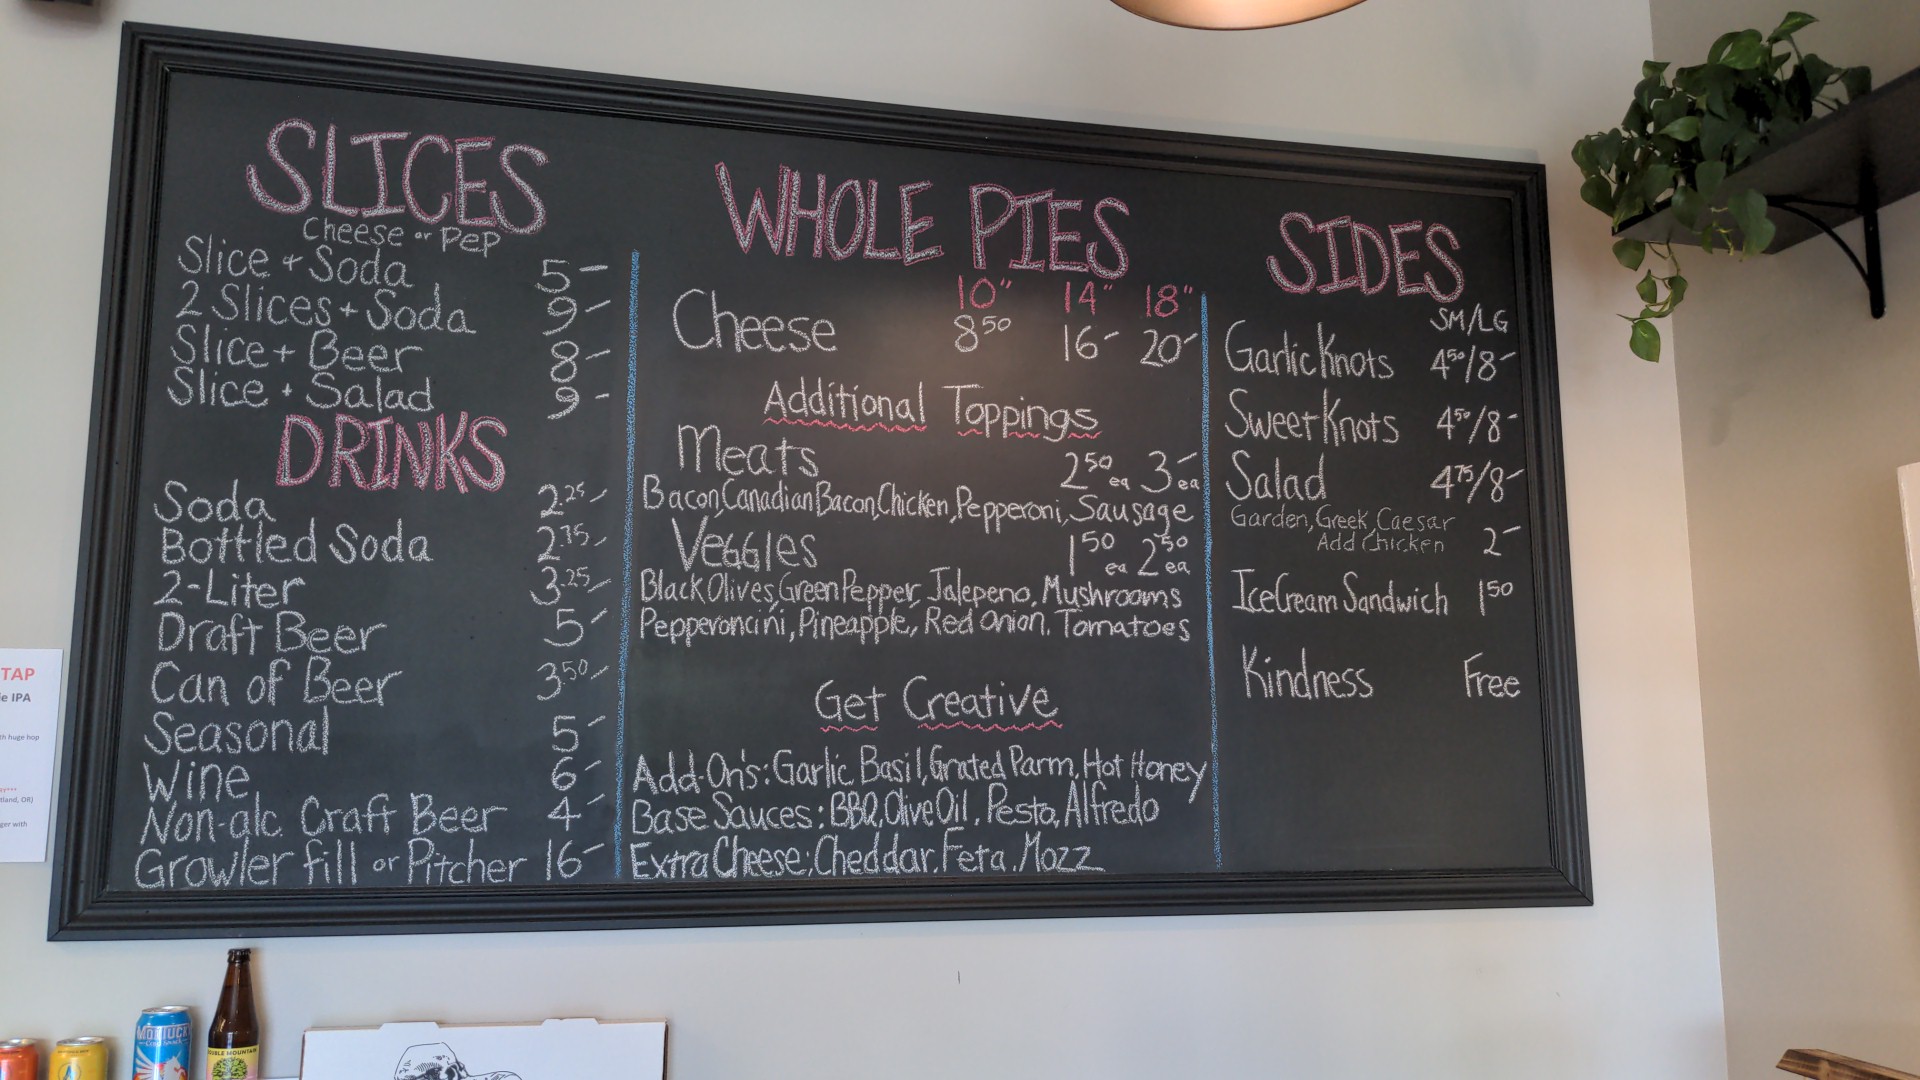 SLICES
Cheese or Pep
Slice + Soda 5-
2 Slices + Soda 9-
Slice + Beer 8-
Slice + Salad 9-
DRINKS
Soda 2.25-
Bottled Soda 2.75-
2-Liter 3.25-
Draft Beer 5-
Can of Beer 3.50-
Seasonal 5-
Wine 6-
Non-alc. Craft Beer 4-
Growler fill or Pitcher 16-
WHOLE PIES
10" 14" 18"
Cheese 8 50 16- 20-
Additional Toppings
Meats 2 50 ea 3- ea
Bacon, Canadian Bacon, Chicken, Pepperoni, Sausage
Veggies 1 50 ea 2 50 ea
Black Olives, Green Pepper, Jalepeno, Mushrooms
Pepperoncini, Pineapple, Red Onion, Tomatoes
Get Creative
Add-On's: Garlic, Basil, Grated Parm, Hot Honey
Base Sauces: BBQ, Olive Oil, Pesto, Alfredo
Extra Cheese: Cheddar, Feta, Mozz
SIDES
SM/LG
Garlic Knots 4 50/8-
Sweet Knots 4 50/8-
Salad 4 75/8-
Garden, Greek, Caesar
Add Chicken 2-
Ice Cream Sandwich 1 50
Kindness Free
TAP
IPA
th huge hop
tland, OR)
ger with
DOUBLE MOUNTAIN